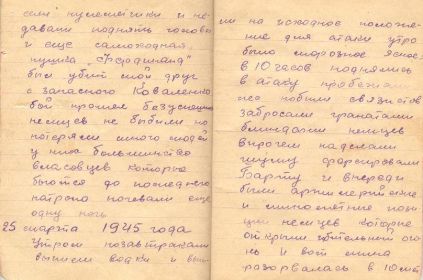 сели пулеметчики и не
давали поднять головы
и еще самоходная
пушка "Фердинанд"
был убит мой друг
с запасного Коваленко
бой прошел безуспешно
немцев не выбили но
потеряли много людей
у них большинство
власовцев которые
бьются до последнего
патрона ночевали еще
одну ночь
25 марта 1945 года
Утром позавтракали
выпили водки и выш
ли на исходное положе
ние для атаки утро
было морозное ясное
в 10 часов поднялись
в атаку
забросали гранатами
блиндажи немцев
впрочем наделали
шуму форсировали
Барту и впереди
были
и минометные пози
ции немцев которые
открыли огo
нь и вот мина
разорвалась в 10 мт